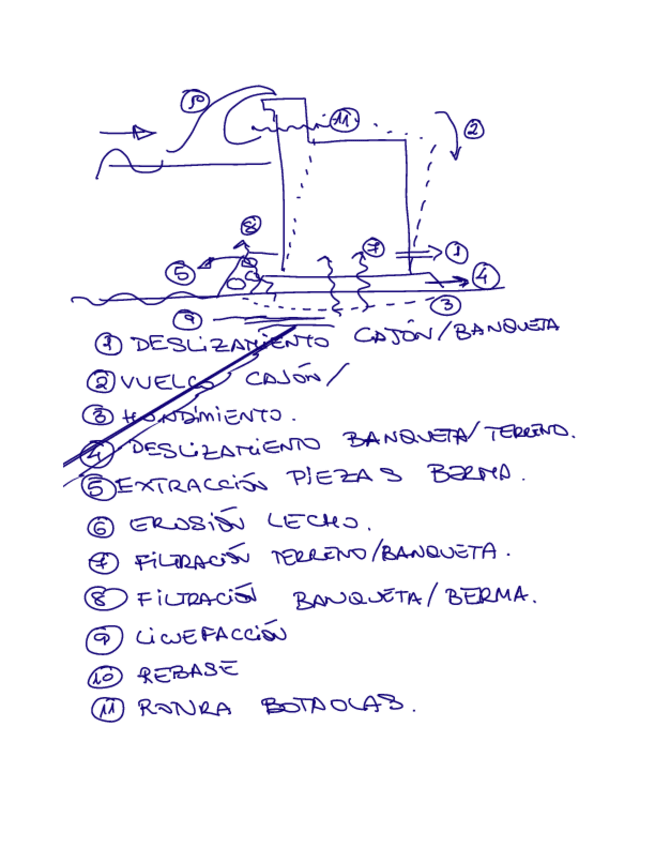 10
11
2
8
7
1
5
4
3
9
1 DESLIZAMIENTO CAJÓN/BANQUETA
2 VUELCO CAJÓN/
3 HUNDIMIENTO.
4 DESLIZAMIENTO BANQUETA/TERRENO.
5 EXTRACCIÓN PIEZAS BERMA.
6 EROSIÓN LECHO.
7 FILTRACIÓN TERRENO/BANQUETA.
8 FILTRACIÓN BANQUETA/BERMA.
9 LICUEFACCIÓN
10 REBASE
11 BOTAOLAS.